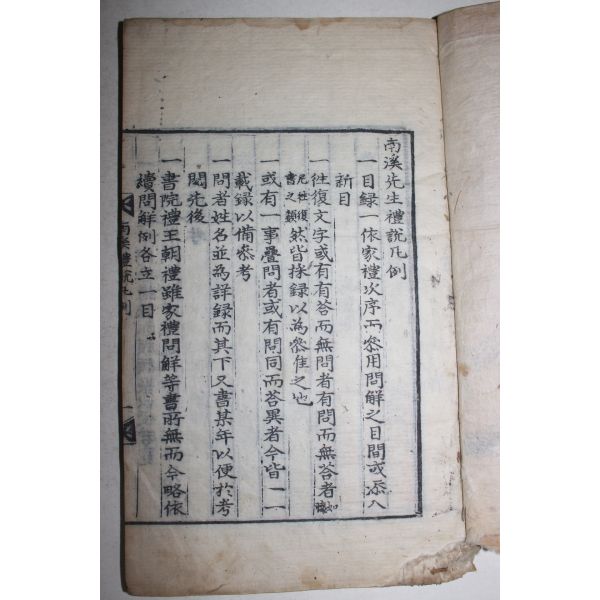 南溪先生禮說凡例
一目録一依家禮次序而叅用問解之目間或添入
新目
一往復文字或有有答而無問者有問而無答者如
尼徃復
書之類然皆採録以爲叅隹之地
一或有一事疊問者或有問同而答異者今皆一一
載録以備叅考
一問者姓名並爲詳録而其下又書某年以便於考
閱先後
一書院禮王朝禮雖家禮問解等書所無而今略依
續問解例各立一目
南溪禮說凡例
一